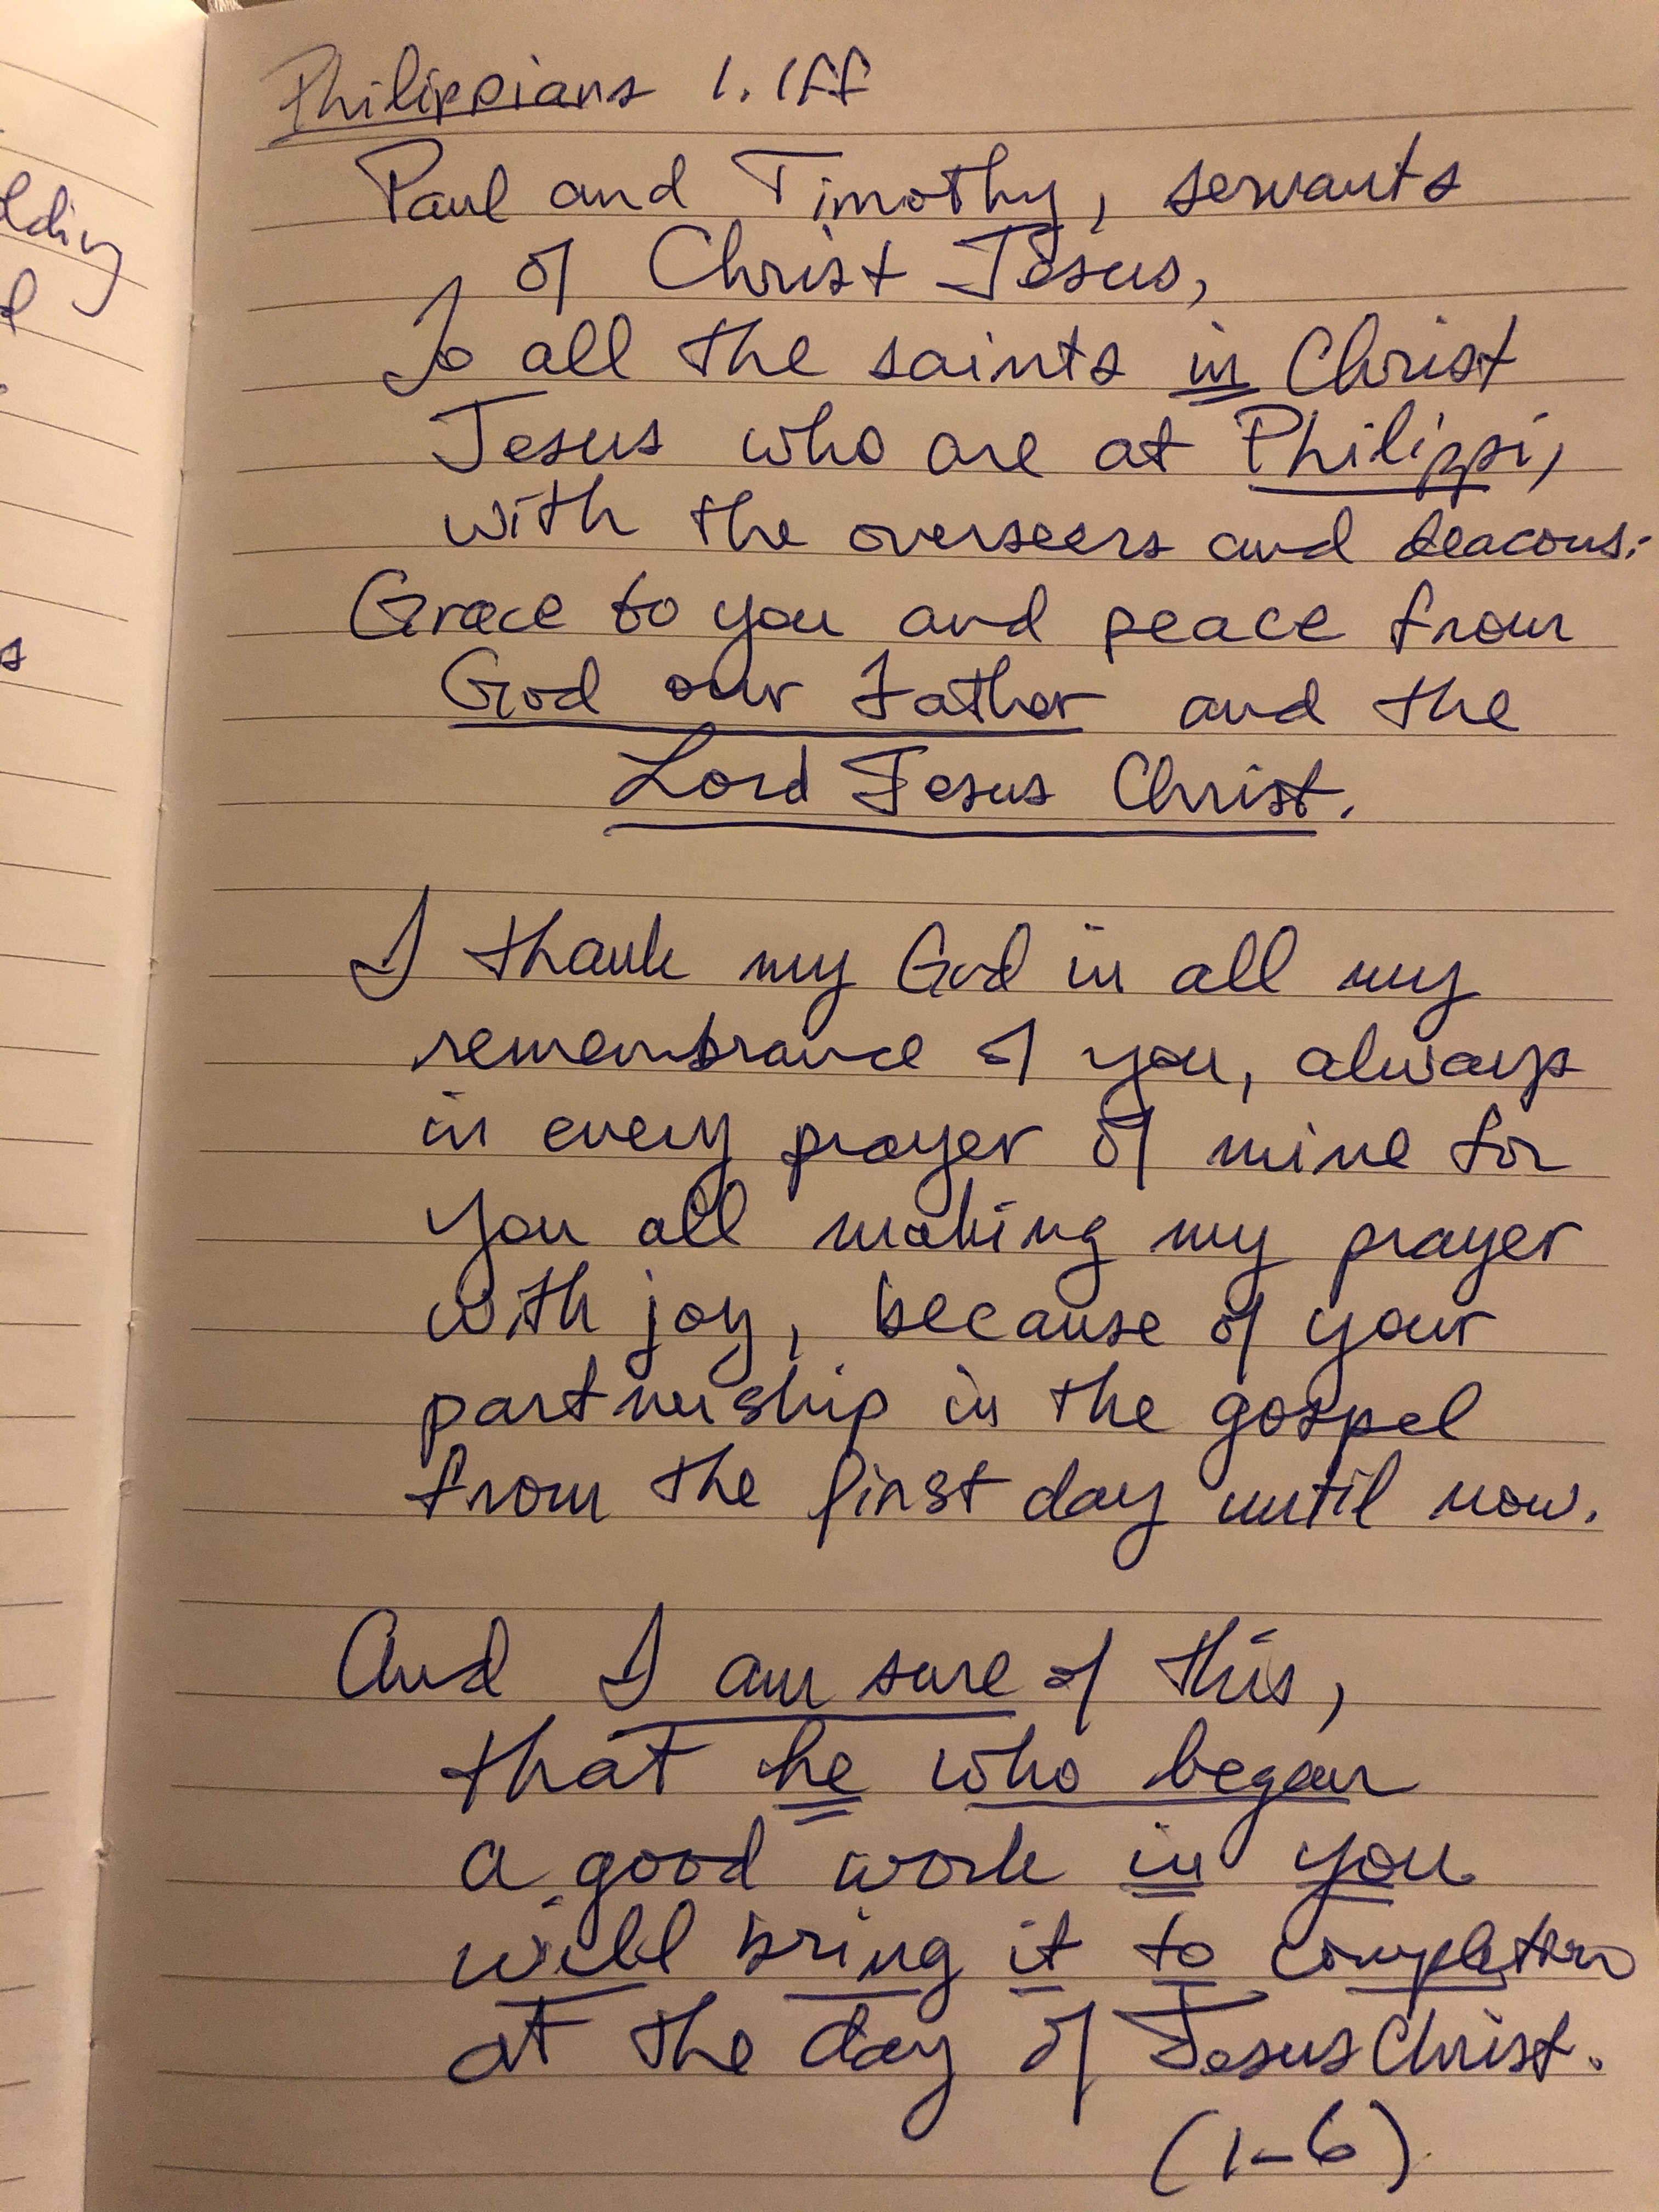 Philippians 1.1ff
Paul and Timothy, servants
of Christ Jesus,
To all the saints in Christ
Jesus who are at Philippi,
with the overseers and deacons:
Grace to you and peace from
God our Father and the
Lord Jesus Christ.
I thank my God in all my
remembrance of you, always
in every prayer of mine for
you all making my prayer
with joy, because of your
partnership in the gospel
from the first day until now.
And I am sure of this,
that he who began
a good work in you
will bring it to completion
at the day of Jesus Christ.
(1-6)